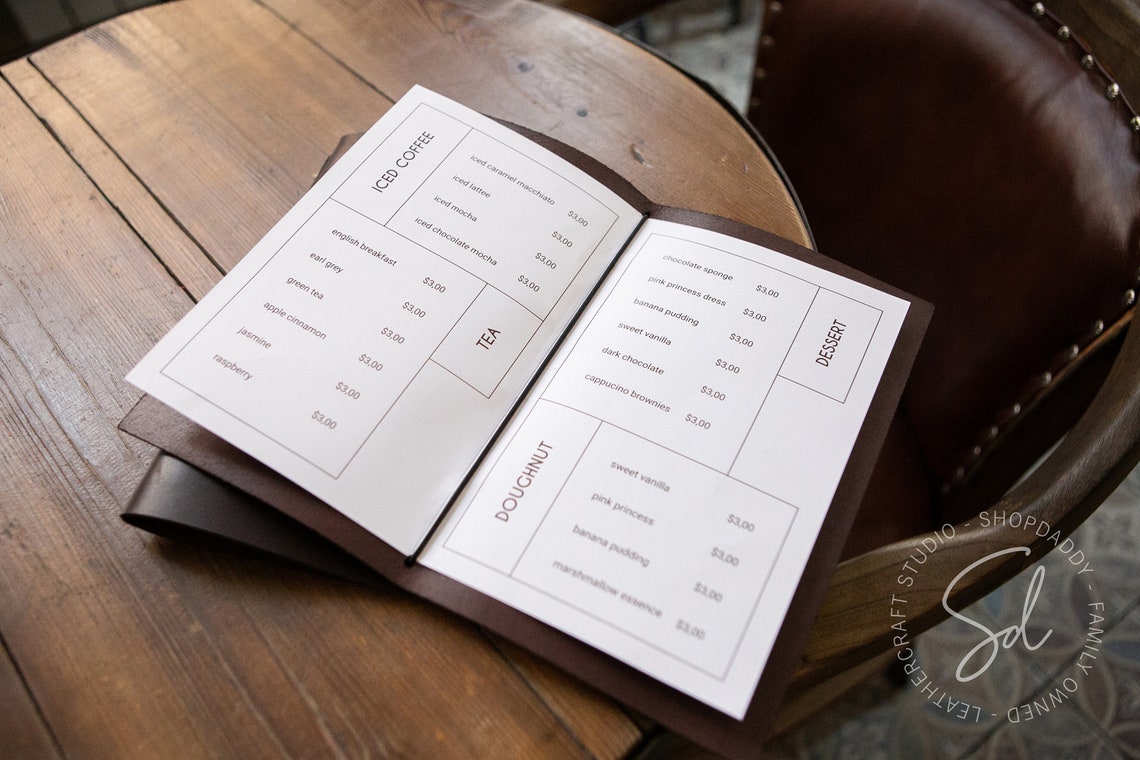 ICED COFFEE
iced caramel macchiato $3,00
iced lattee $3,00
iced mocha $3,00
iced chocolate mocha $3,00
TEA
english breakfast $3,00
earl grey $3,00
green tea $3,00
apple cinnamon $3,00
jasmine $3,00
raspberry $3,00
DESSERT
chocolate sponge $3,00
pink princess dress $3,00
banana pudding $3,00
sweet vanilla $3,00
dark chocolate $3,00
cappucino brownies $3,00
DOUGHNUT
sweet vanilla $3,00
pink princess $3,00
banana pudding $3,00
marshmallow essence $3,00
LEATHERCRAFT STUDIO - SHOPDADDY - FAMILY OWNED -
Sd